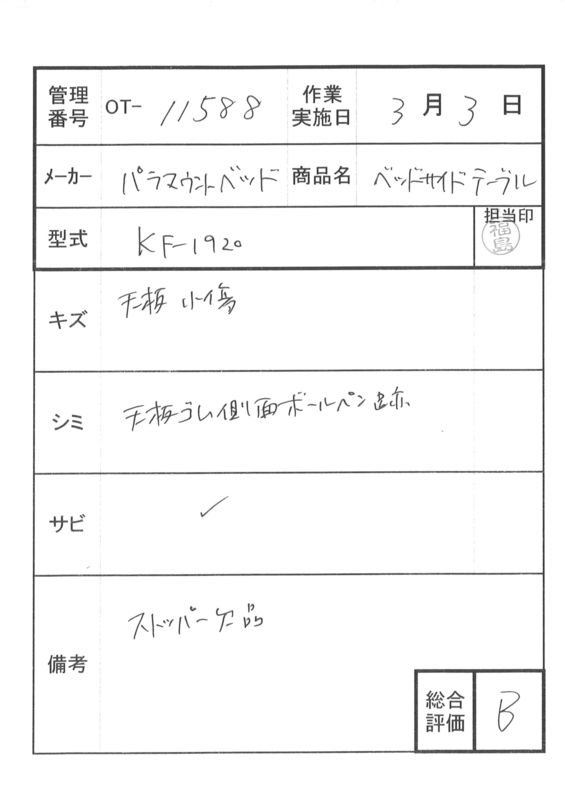 管理番号 OT- 11588 作業実施日 3月3日
メーカー パラマウントベッド 商品名 ベッドサイドテーブル
型式 KF-1920 担当印 福島
キズ 天板 小傷
シミ 天板うら側面ボールペン跡
サビ ✓
備考 ストッパー欠品
総合評価 B